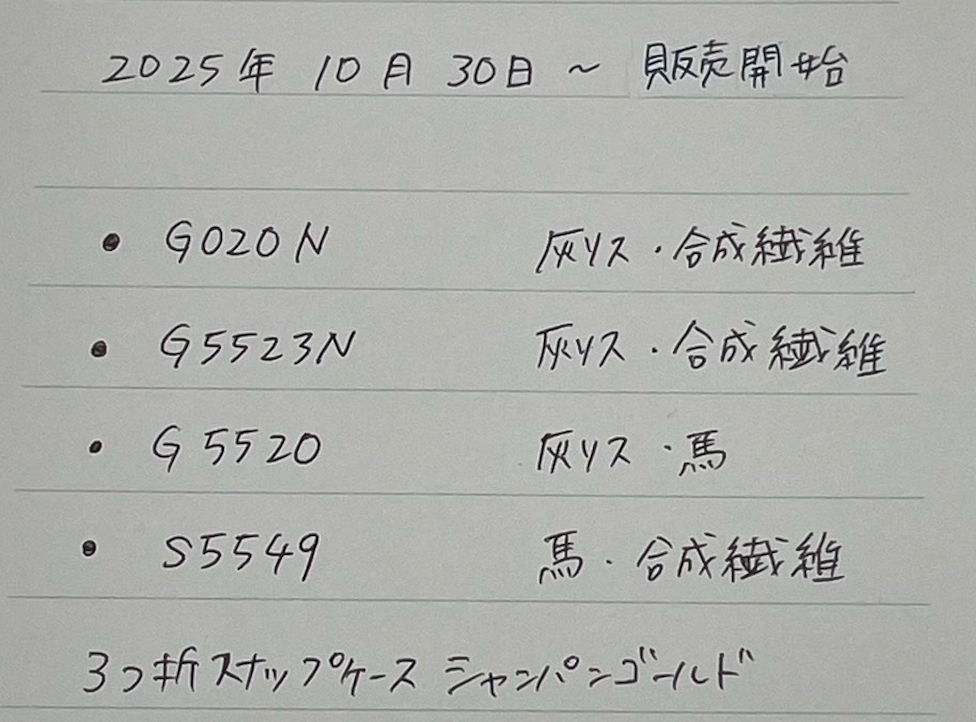 2025年 10月 30日 ~ 販売開始
• G020N 灰リス・合成繊維
• G5523N 灰リス・合成繊維
• G5520 灰リス・馬
• S5549 馬・合成繊維
3つ折スナップケース シャンパンゴールド